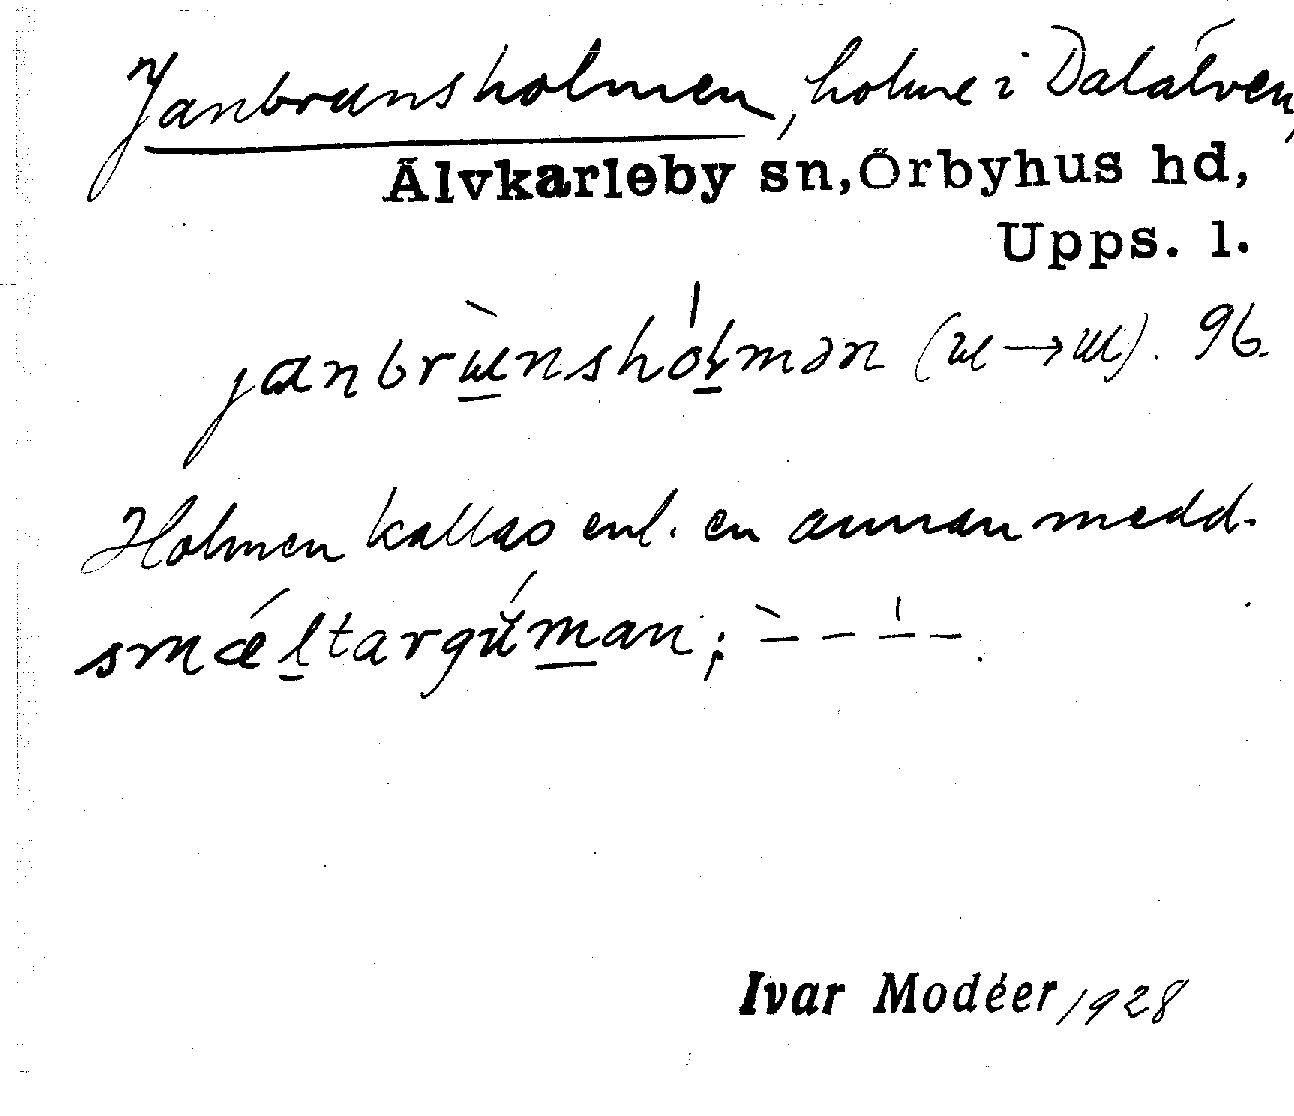 Janbrunsholmen, holme i Dalälven,
Älvkarleby sn, Örbyhus hd,
Upps. l.
96.
Holmen kallas enl. en annan medd.
smæltargŭman; – – – –
Ivar Modéer /1928